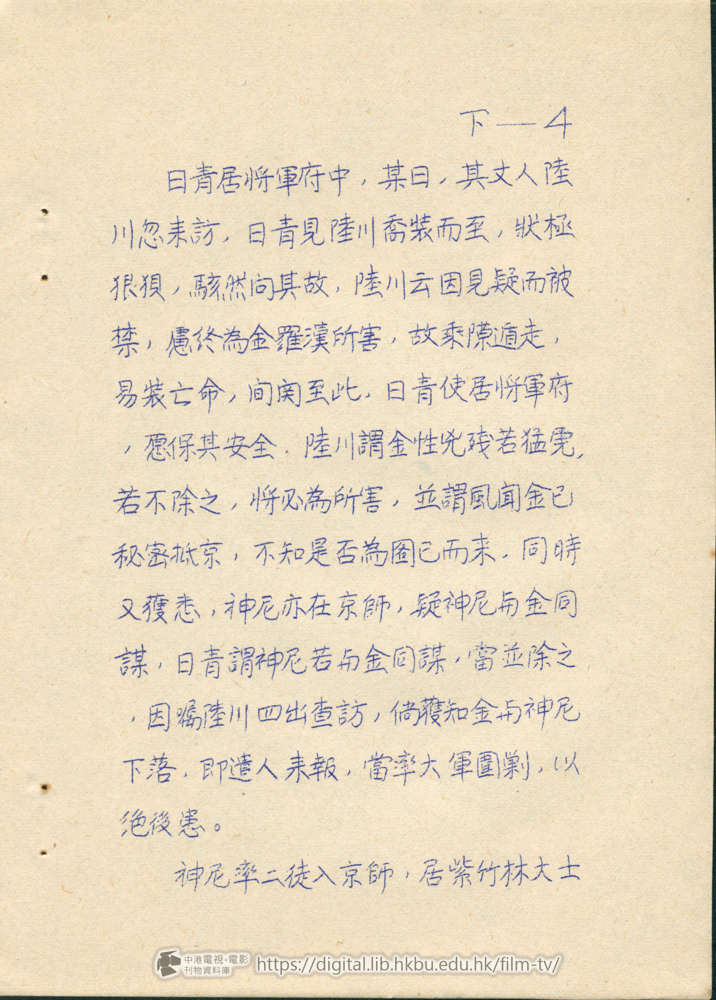 下—4
日青居将軍府中，某日，其丈人陸
川忽来訪，日青見陸川喬装而至，狀極
狼狽，駭然问其故，陸川云因見疑而被
禁，慮終為金羅漢所害，故乘隙遁走，
易裝亡命，间関至此，日青使居将軍府
，愿保其安全．陸川謂金性兇残若猛虎，
若不除之，将必為所害，並謂風闻金已
秘密抵京，不知是否為圖已而来．同時
又獲悉，神尼亦在京師，疑神尼与金同
謀，日青謂神尼若与金同謀，當並除之
，因囑陸川四出查訪，倘獲知金与神尼
下落，即遣人来報，當率大軍圍剿，以
绝後患。
神尼率二徒入京師，居紫竹林大士
中港電視·電影
刊物資料庫
https://digital.lib.hkbu.edu.hk/film-tv/